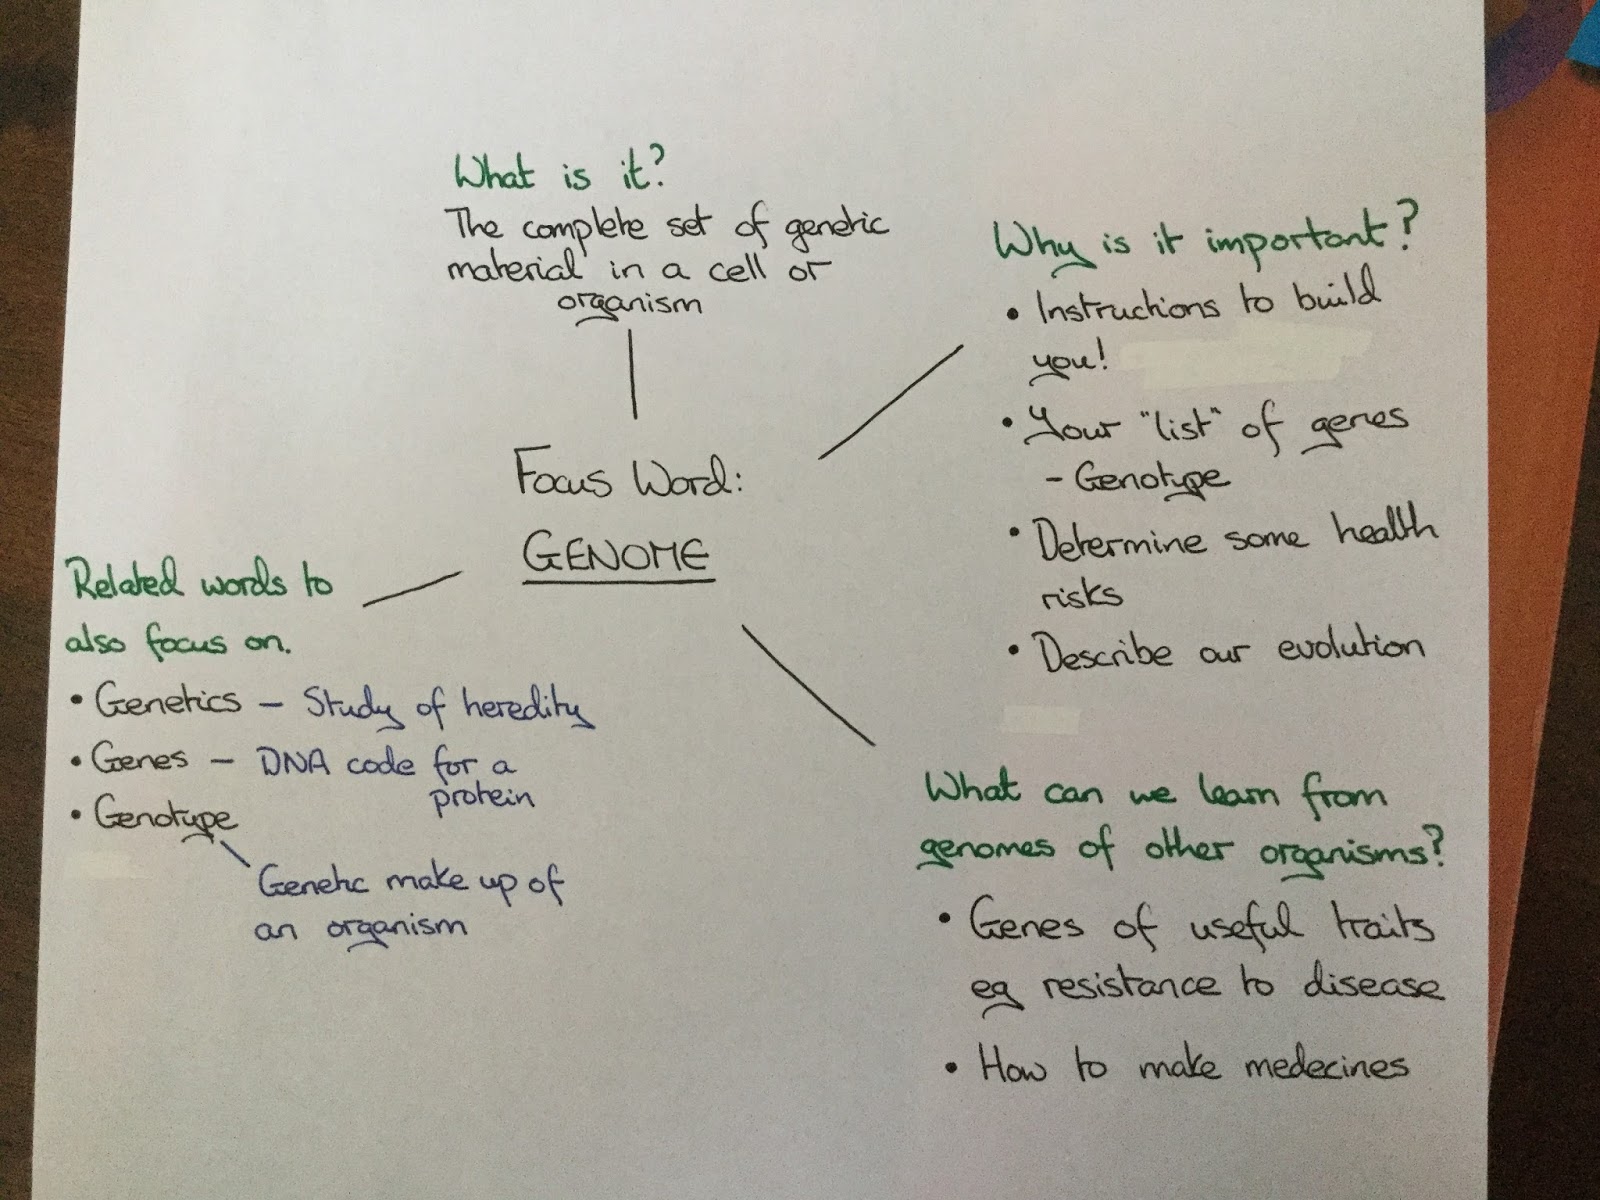 What is it?
The complete set of genetic
material in a cell or
organism
Why is it important?
• Instructions to build
you!
• Your "list" of genes
- Genotype
• Determine some health
risks
• Describe our evolution
Focus Word:
GENOME
Related words to
also focus on.
• Genetics - Study of heredity
• Genes - DNA code for a
protein
• Genotype
Genetic make up of
an organism
What can we learn from
genomes of other organisms?
• Genes of useful traits
eg resistance to disease
• How to make medecines